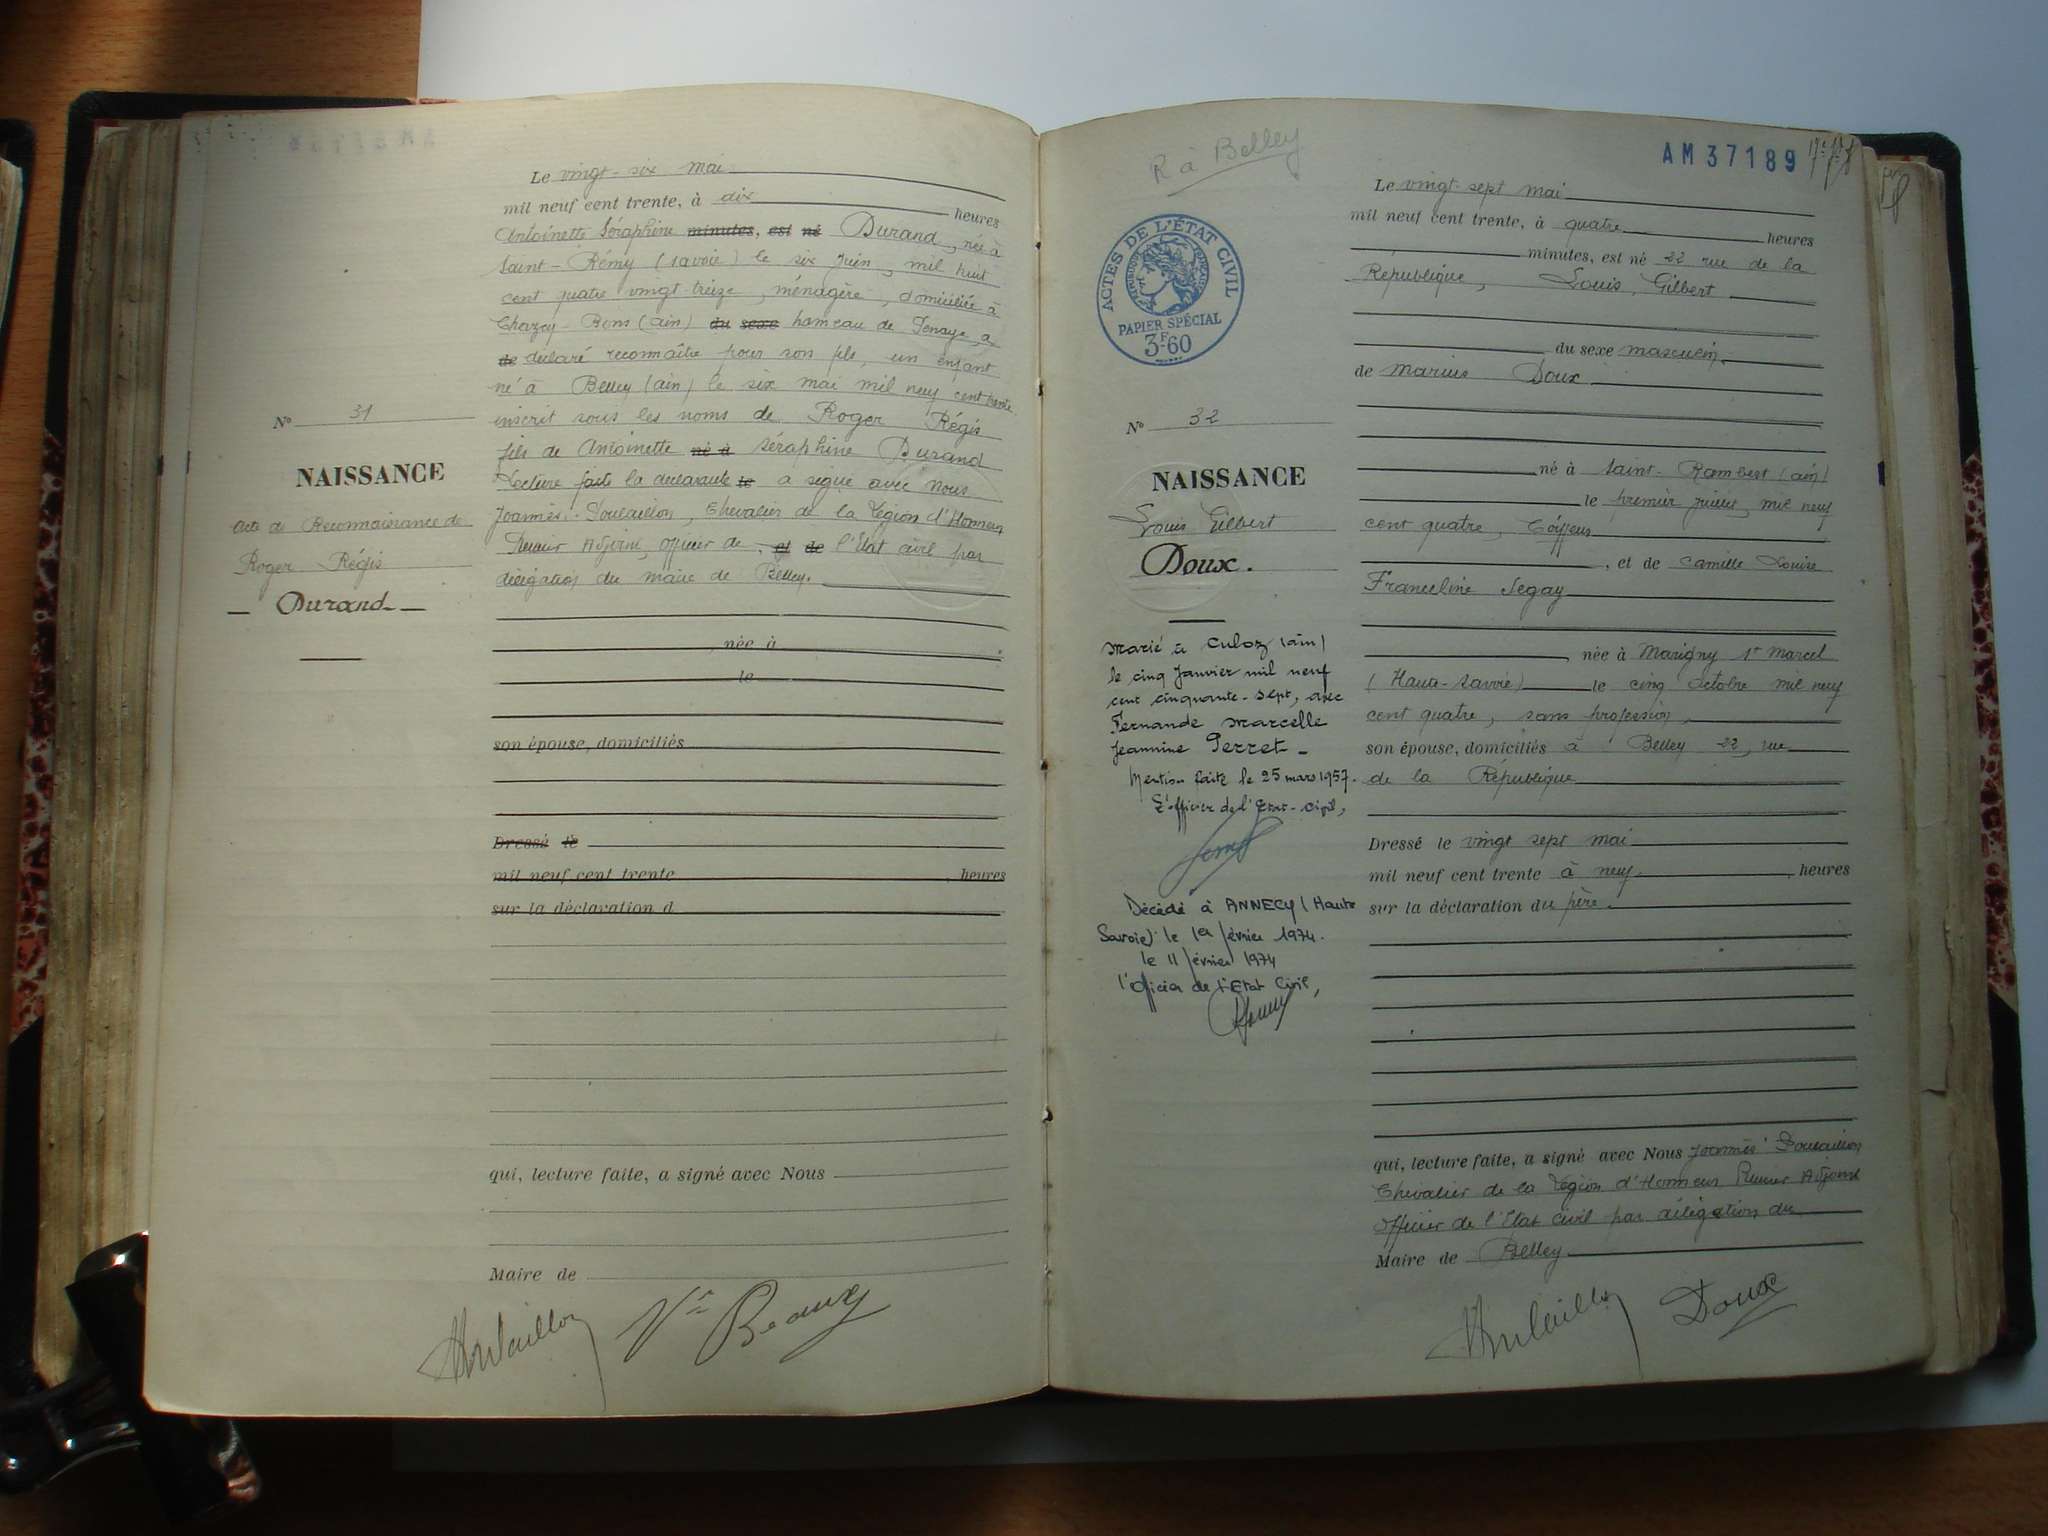 Le vingt-six mai
mil neuf cent trente, à dix heures
Antoinette Séraphine minutes, est né Durand, née à
Saint-Rémy (Savoie) le six juin, mil huit
cent quatre vingt treize, ménagère, domiciliée à
Chazey-Bons (ain) du sexe hameau de Penaye, a
de déclaré reconnaître pour son fils, un enfant
né à Belley (ain) le six mai mil neuf cent trente
inscrit sous les noms de Roger Régis
fils de Antoinette né à Séraphine Durand
Lecture faite la déclarante le a signé avec Nous
Joannès Soulaillon, Chevalier de la Légion d'Honneur
Premier Adjoint, officier de, et de l'Etat civil par
délégation du maire de Belley.
née à
le
son épouse, domiciliés
Dressé le
mil neuf cent trente, heures
sur la déclaration d
qui, lecture faite, a signé avec Nous
Maire de
Vve Beaux
N° 31
NAISSANCE
Acte de Reconnaissance de
Roger Régis
Durand
R à Belley
AM 37189
ACTES DE L'ÉTAT CIVIL
PAPIER SPÉCIAL
3F60
N° 32
NAISSANCE
Louis Gilbert
Doux.
Marié à Culoz (ain)
le cinq Janvier mil neuf
cent cinquante-sept, avec
Fernande Marcelle
Jeannine Perret-
Mention faite le 25 mars 1957.
L'officier de l'Etat-Civil,
Décédé à ANNECY (Haute
Savoie) le 1er février 1974.
le 11 février 1974
l'Officier de l'Etat Civil,
Le vingt-sept mai
mil neuf cent trente, à quatre heures
minutes, est né 22 rue de la
République, Louis, Gilbert
du sexe masculin
de Marius Doux
né à Saint-Rambert (ain)
le premier juillet, mil neuf
cent quatre, Coiffeur
, et de Camille Louise
Franceline Segay
née à Marigny St Marcel
(Haute-Savoie) le cinq octobre mil neuf
cent quatre, sans profession,
son épouse, domiciliés à Belley 22, rue
de la République
Dressé le vingt sept mai
mil neuf cent trente à neuf, heures
sur la déclaration du père.
qui, lecture faite, a signé avec Nous Joannès Soulaillon
Chevalier de la Légion d'Honneur Premier Adjoint
Officier de l'Etat civil par délégation du
Maire de Belley
Doux